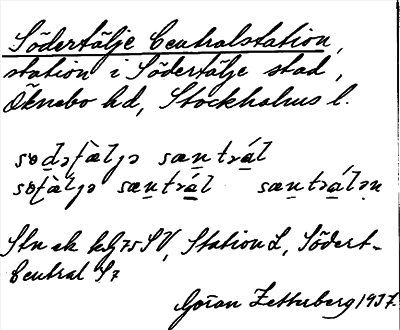 Södertälje Centralstation,
station i Södertälje stad,
Öknebo hd, Stockholms l.
sødəfàljə sæntrál
søfàljə sæntrál sæntrálən
Stn ek kbl 75 SV, Station L, Södert-
Central S7
Göran Zetterberg 1937.